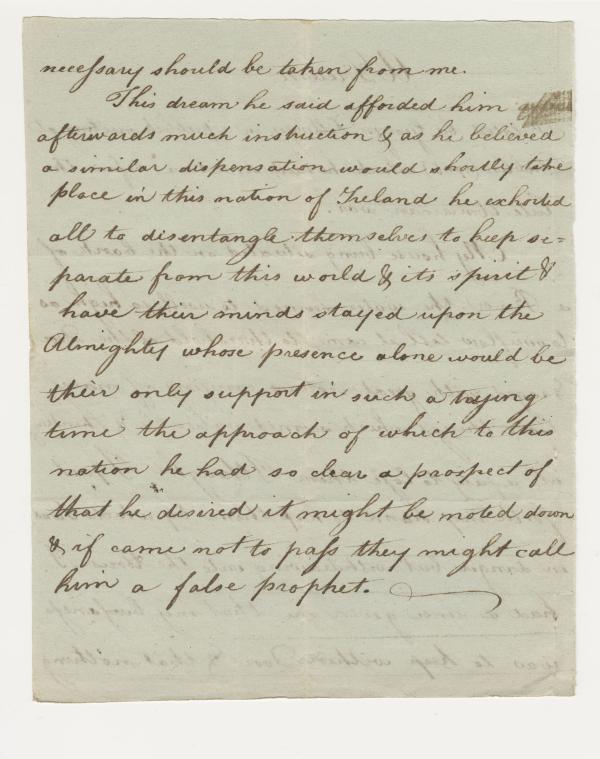 necessary should be taken from me.
This dream he said afforded him
afterwards much instruction & as he believed
a similar dispensation would shortly take
place in this nation of Ireland he exhorted
all to disentangle themselves to keep se=
parate from this world & its spirit &
have their minds stayed upon the
Almighty whose presence alone would be
their only support in such a trying
time the approach of which to this
nation he had so clear a prospect of
that he desired it might be noted down
& if came not to pass they might call
him a false prophet.